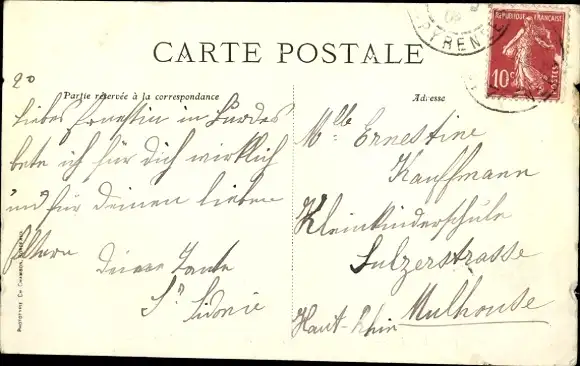 CARTE POSTALE
Partie réservée à la correspondance
Adresse
REPUBLIQUE FRANÇAISE
10c
POSTES
20
Liebes Ernestin in Lourdes
bete ich für dich wirklich
und für deinen lieben
Eltern
Deine Tante
Sr Sidonie
Mlle Ernestine
Kauffmann
Kleinkinderschule
Sulzerstrasse
Mulhouse
Haut-Rhin